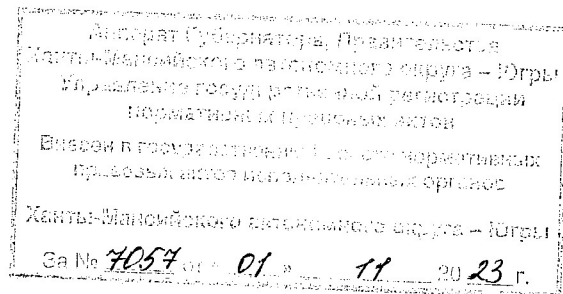 Аппарат Губернатора, Правительства
Ханты-Мансийского автономного округа – Югры
Управление государственной регистрации
нормативных правовых актов
Внесен в государственный реестр нормативных
правовых актов исполнительных органов
Ханты-Мансийского автономного округа – Югры
За № 7057 от « 01 » 11 20 23 г.